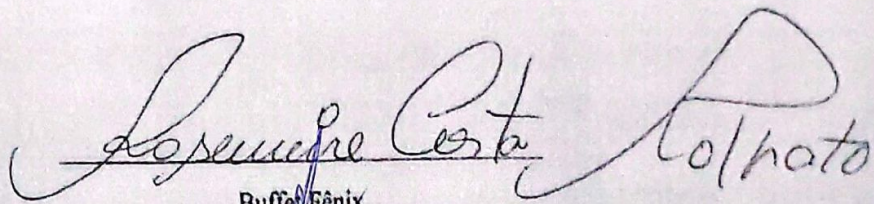 Rosemeire Costa Tolnato
Buffet Fênix